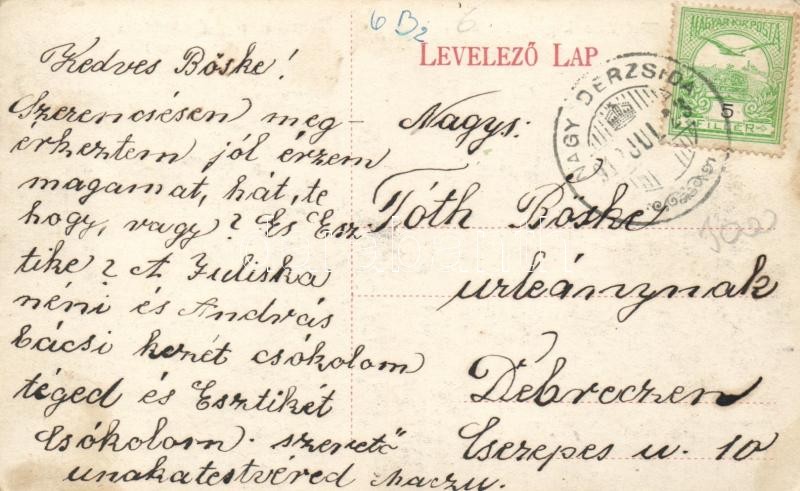 6 B2
LEVELEZŐ LAP
MAGYAR KIR. POSTA
5
FILLÉR
NAGY DERZSIDA
JUL
Kedves Böske!
Szerencsésen meg-
érkeztem jól érzem
magamat, hát, te
hogy, vagy? Es Esz
tike? A Juliska
néni és András
bácsi kezét csókolom
téged és Esztikét
csókolom. szerető
unakatestvéred
Nagys:
Tóth Böske
urleánynak
Debreczen
Cserepes u. 10